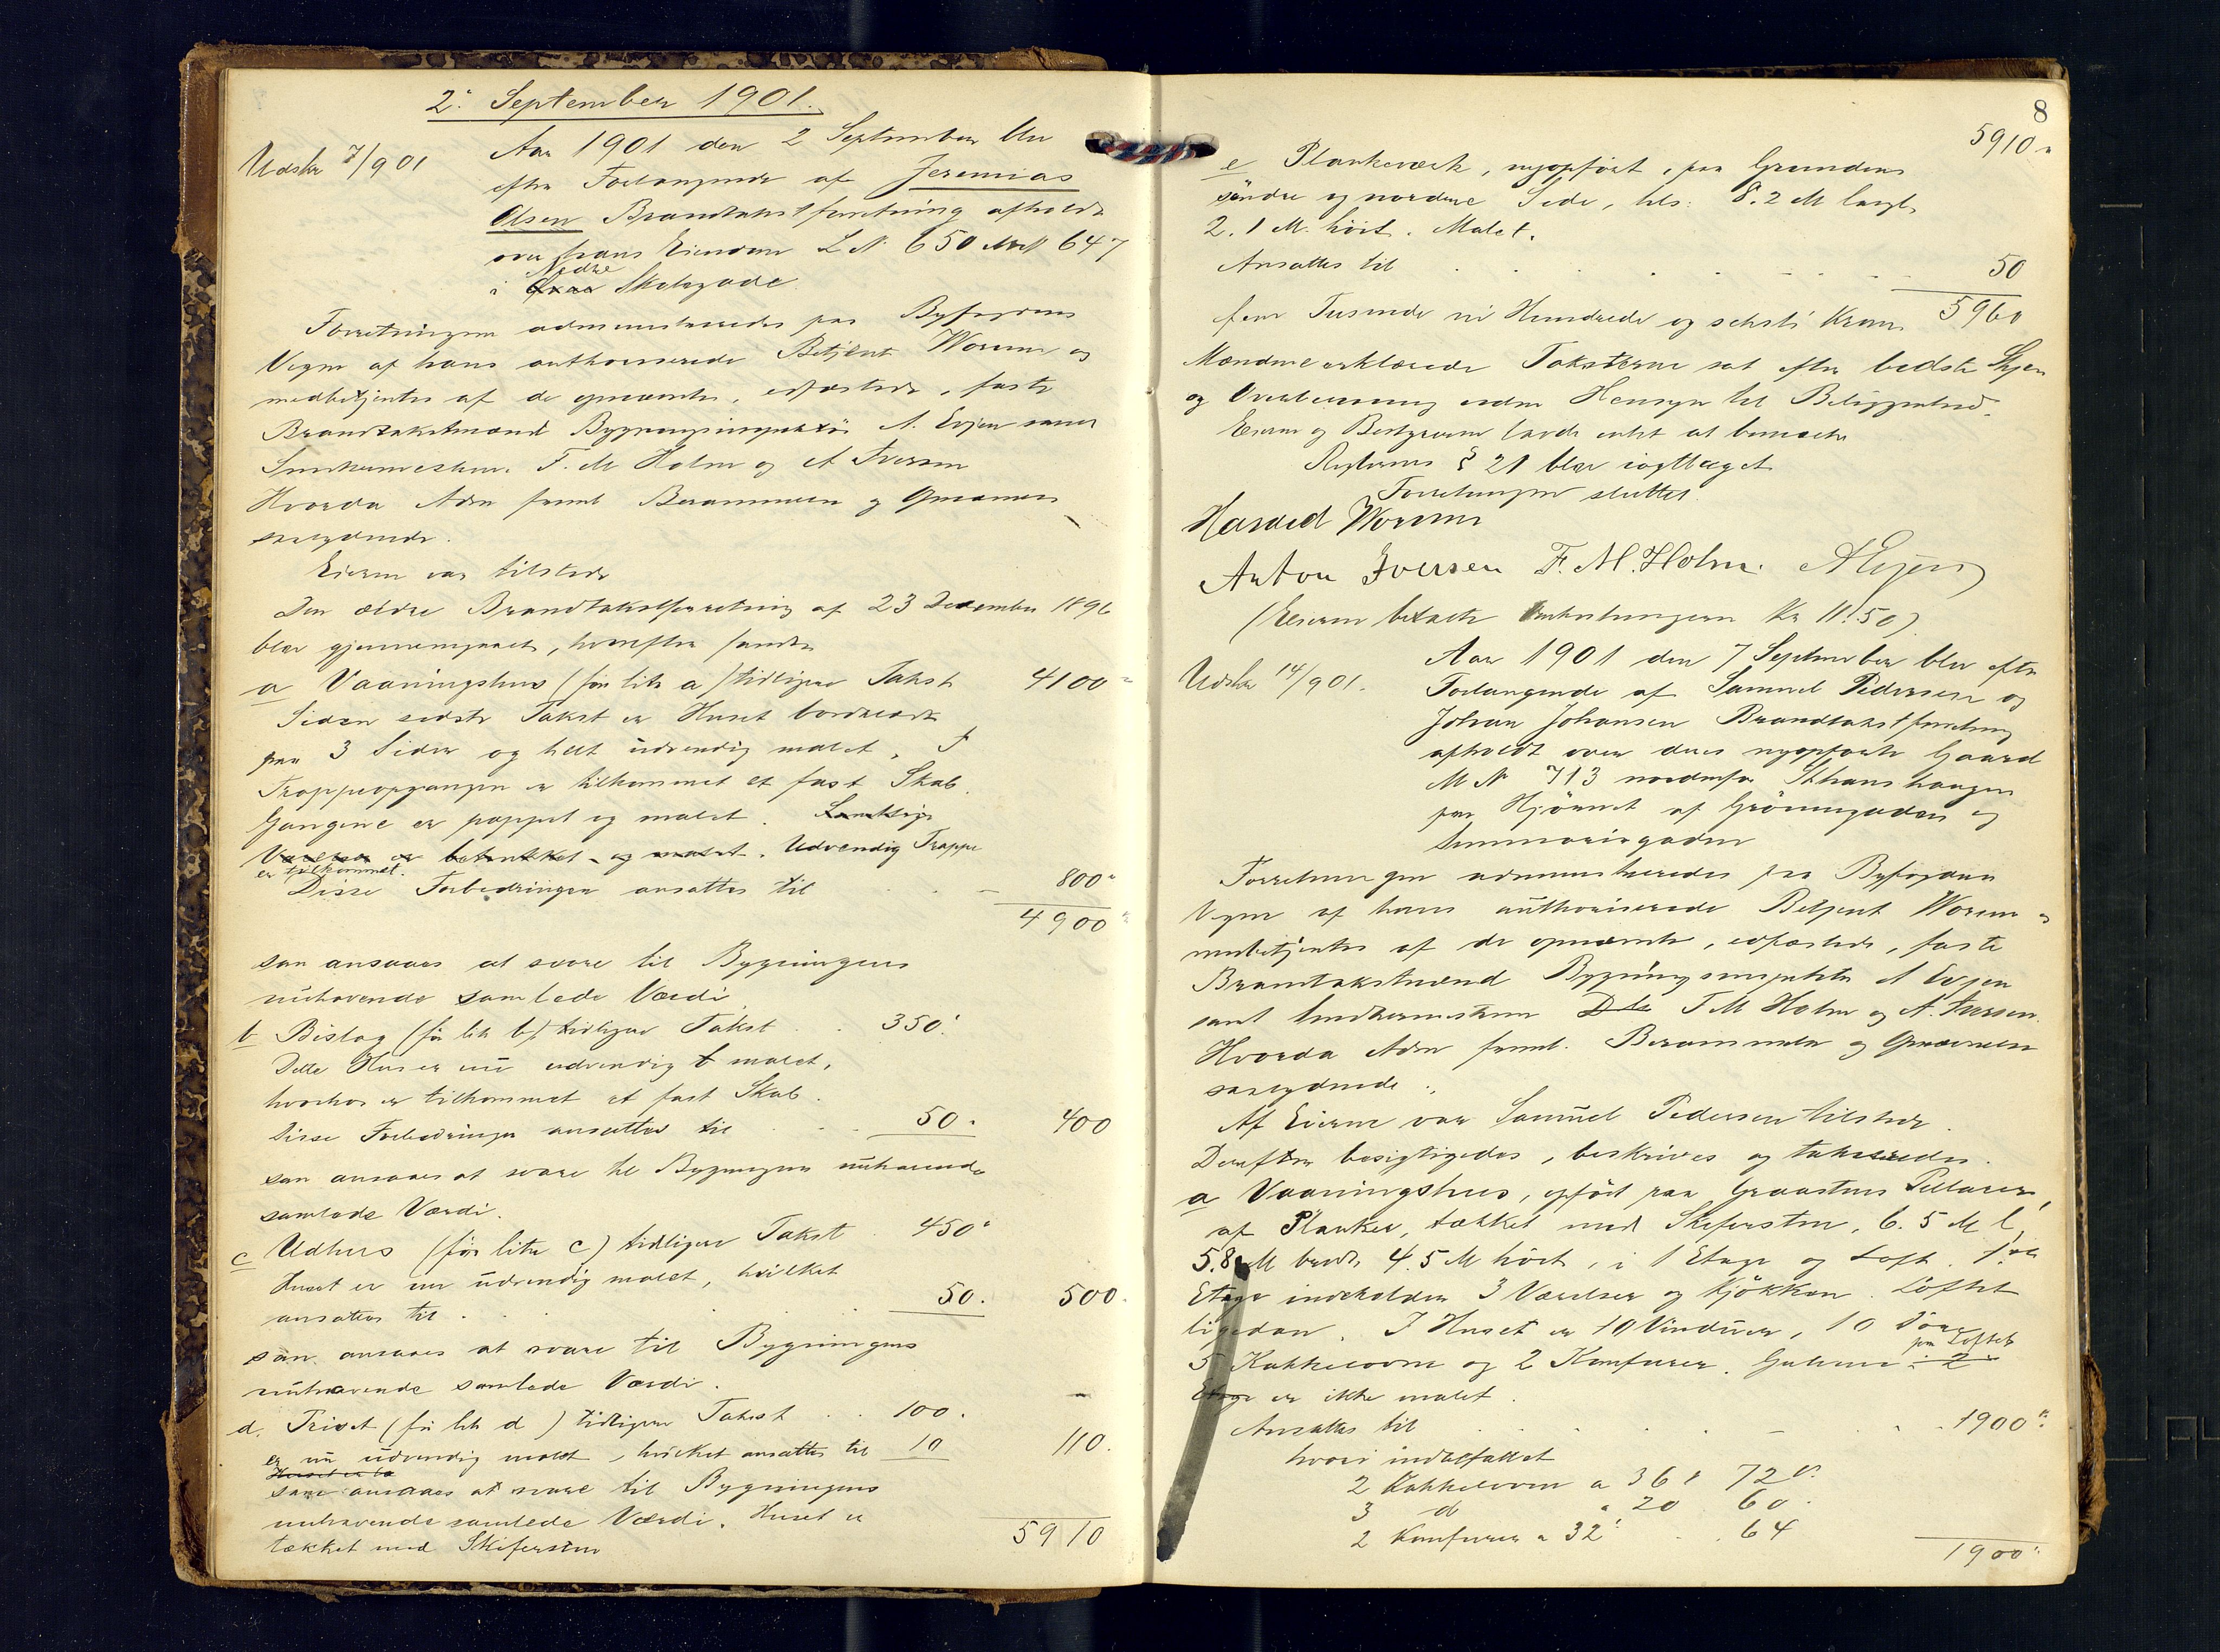 2. September 1901.
Udskr 7/901
Aar 1901 den 2 September blev
efter Forlangende af Jeremias
Olsen Brandtakstforretning afholdt
over hans Eiendom L.N. 650 Mat N 647
Nedre
i Øvre Skolegade.
Forretningen administreredes paa Byfogdens
Vegne af hans authoriserede Betjent Worum og
medbetjentes af de opnævnte, edfæstede, faste
Brandtakstmænd Bygningsinspektör A. Evjen samt
Snedkermestrene F. M Holm og A Iversen
Hvorda Adm freml Berammelse og Opnævnelse
saalydende.
Eieren var tilstede
Den ældre Brandtakstforretning af 23 December 1896
blev gjennemgaaet, hvorefter fandtes
a Vaaningshus (för litr a) tidligere Takst 4100
Siden sidste Takst er Huset bordklædt
paa 3 Sider og helt udvendig malet. I
Trappeopgangen er tilkommet et fast Skab.
Gangene er pappet og malet. Samtlige
Værelser er betrukket og malet. Udvendig Trappe
er tilkommet.
Disse Forbedringer ansattes til 800
4900
som ansaaes at svare til Bygningens
nuhavende samlede Værdi.
b Bislag (för litr b) tidligere Takst 350
Dette Hus er nu udvendig malet,
hvorhos er tilkommet et fast Skab.
Disse Forbedringer ansattes til 50. 400
som ansaaes at svare til Bygningens nuhavende
samlede Værdi.
c Udhus (för litr c) tidligere Takst 450
Huset er nu udvendig malet, hvilket
ansattes til 50. 500.
som ansaaes at svare til Bygningens
nuhavende samlede Værdi.
d. Privet (för litr d) tidligere Takst 100.
er nu udvendig malet, hvilket ansattes til 10 110.
Huset er
som ansaaes at svare til Bygningens
nuhavende samlede Værdi. Huset er
tækket med Skifersten 5910
8
5910
e Plankeværk, nyopfört, paa Grundens
söndre og nordre Side, tils: 8.2 M langt,
2.1 M. höit. Malet.
Ansattes til 50
fem Tusinde ni Hundrede og seksti Kroner 5960
Mændene erklærede Taksterne sat efter bedste Skjön
og Overbevisning uden Hensyn til Beliggenhed.
Eieren og Bestyreren havde intet at bemærke
Reglernes § 21 blev iagttaget
Forretningen sluttet.
Harald Worum
Anton Iversen F. M. Holm. A Evjen
(Eieren betalte Omkostningerne Kr 11.50)
Udskr 14/901.
Aar 1901 den 7 September blev efter
Forlangende af Samuel Pedersen og
Johan Johansen Brandtakstforretning
afholdt over deres nyopförte Gaard
M N 713 nordenfor Sthanshaugen
paa Hjörnet af Grönnegaden og
Forretningen administreredes paa Byfogdens
Vegne af hans authoriserede Betjent Worum og
medbetjentes af de opnævnte, edfæstede, faste
Brandtakstmænd Bygningsinspektör A Evjen
samt Snedkermestrene F M Holm og A. Iversen.
Hvorda Adm freml. Berammelse og Opnævnelse
saalydende.
Af Eierne var Samuel Pedersen tilstede.
Derefter besigtigedes, beskrives og taksteredes.
a Vaaningshus, opfört paa Graastens Pillarer,
af Planker, tækket med Skifersten, 6.5 M l,
5.8 M bredt, 4.5 M höit, i 1 Etage og Loft. 1ste
Etage indeholder 3 Værelser og Kjökken. Loftet
ligedan. I Huset er 10 Vinduer, 10 Döre
paa Loftets
5 Kakkelovne og 2 Komfurer. Gulvene i 2
Etage er ikke malet.
Ansattes til 1900
hvori indbefattet
2 Kakkelovne a 36 72
3 do " 20 60.
2 Komfurer a 32 64
1900